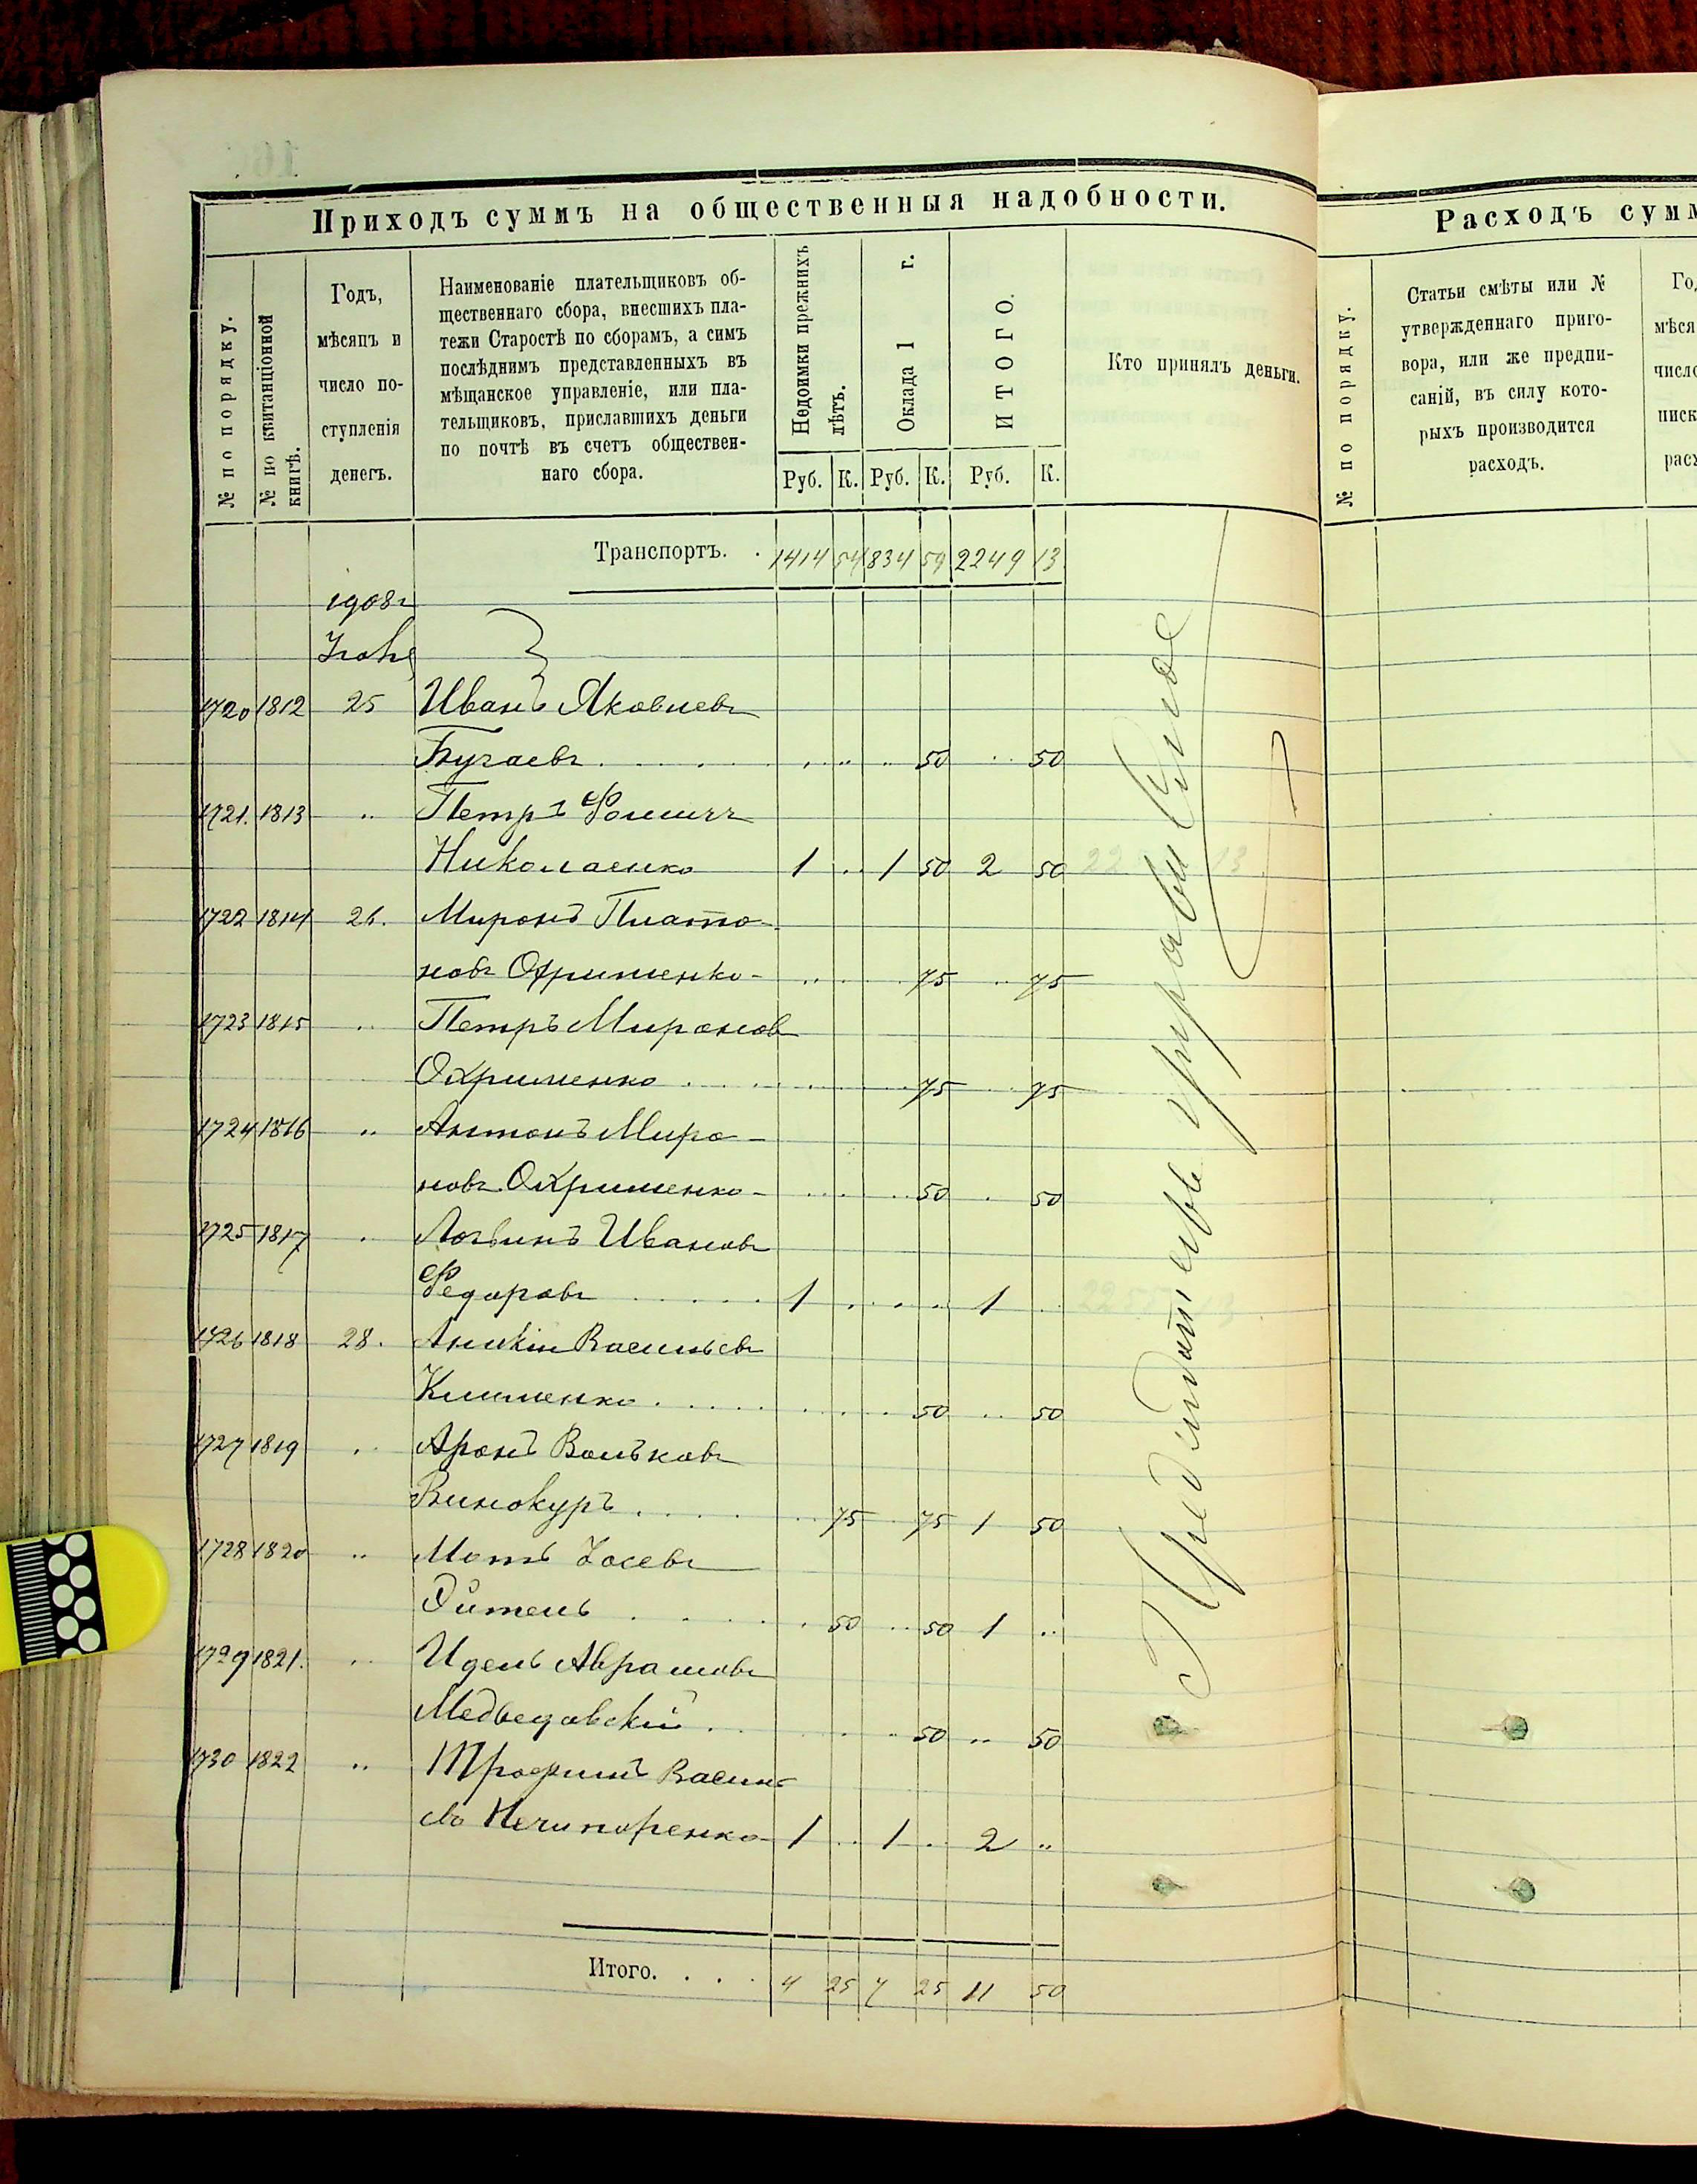 Приходъ суммъ на общественныя надобности.
№ по порядку.
№ по квитанціонной книгѣ.
Годъ,
мѣсяцъ и
число по-
ступленія
денегъ.
Наименованіе плательщиковъ об-
щественнаго сбора, внесшихъ пла-
тежи Старостѣ по сборамъ, а симъ
послѣднимъ представленныхъ въ
мѣщанское управленіе, или пла-
тельщиковъ, приславшихъ деньги
по почтѣ въ счетъ обществен-
наго сбора.
Недоимки прежнихъ лѣтъ.
Оклада 1 г.
ИТОГО.
Руб. К. Руб. К. Руб. К.
Кто принялъ деньги.
Транспортъ. . 1414 54 834 59 2249 13
1908 г
Іюнь
1720 1812 25 Иванъ Яковлевъ
Бугаевъ . . . 50 50
1721. 1813 " Петръ Фомичъ
Николаенко 1 .. 1 50 2 50
1722 1814 26. Миронъ Плато-
новъ Охрименко - 75 75
1723 1815 " Петръ Миронов
Охрименко . . . 75 75
1724 1816 " Антонъ Миро-
новъ Охрименко - 50 50
1725 1817 " Логвинъ Ивановъ
Федоровъ . . . 1 1
1726 1818 28. Василіевъ
Клименко . . . 50 50
1727 1819 " Аронъ Вольковъ
Винокуръ . . . 75 75 1 50
1728 1820 " Іосевъ
50 50 1 ..
1729 1821. " Идель Аврамовъ
Медведовскій . . 50 50
1730 1822 " Трофимъ Василь
евъ Нечипоренко 1 .. 1 . 2 ..
Итого. . . . 4 25 7 25 11 50
Расходъ сумм
№ по порядку.
Статьи смѣты или №
утвержденнаго приго-
вора, или же предпи-
саній, въ силу кото-
рыхъ производится
расходъ.
Го
мѣся
число
писк
расх